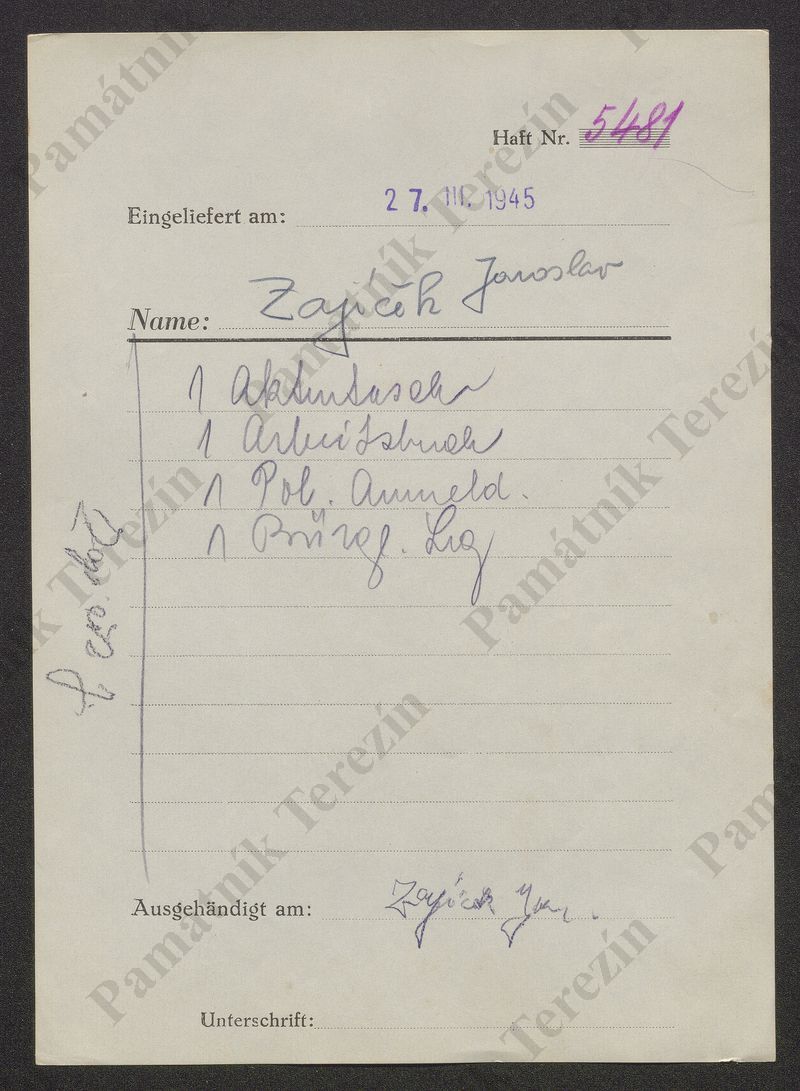 Haft Nr. 5481
Eingeliefert am: 27. III. 1945
Name: Zajíček Jaroslav
1 Aktentasche
1 Arbeitsbuch
1 Pol. Anmeld.
1 Bürgl. Leg
Ausgehändigt am: Zajíček Jar.
Unterschrift:
Památník Terezín
Památník Terezín
Památník Terezín
Památník Terezín